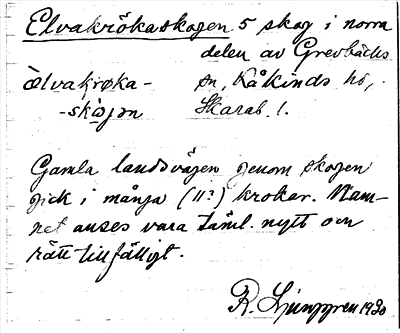 Elvakrökaskogen 5 skog i norra
delen av Grevbäcks
älvakrøka- sn, Kåkinds hd,
-skogən Skarab. l.
Gamla landsvägen genom skogen
gick i många (11?) krokar. Nam-
net anses vara täml. nytt och
rätt tillfälligt.
R. Ljunggren 1930